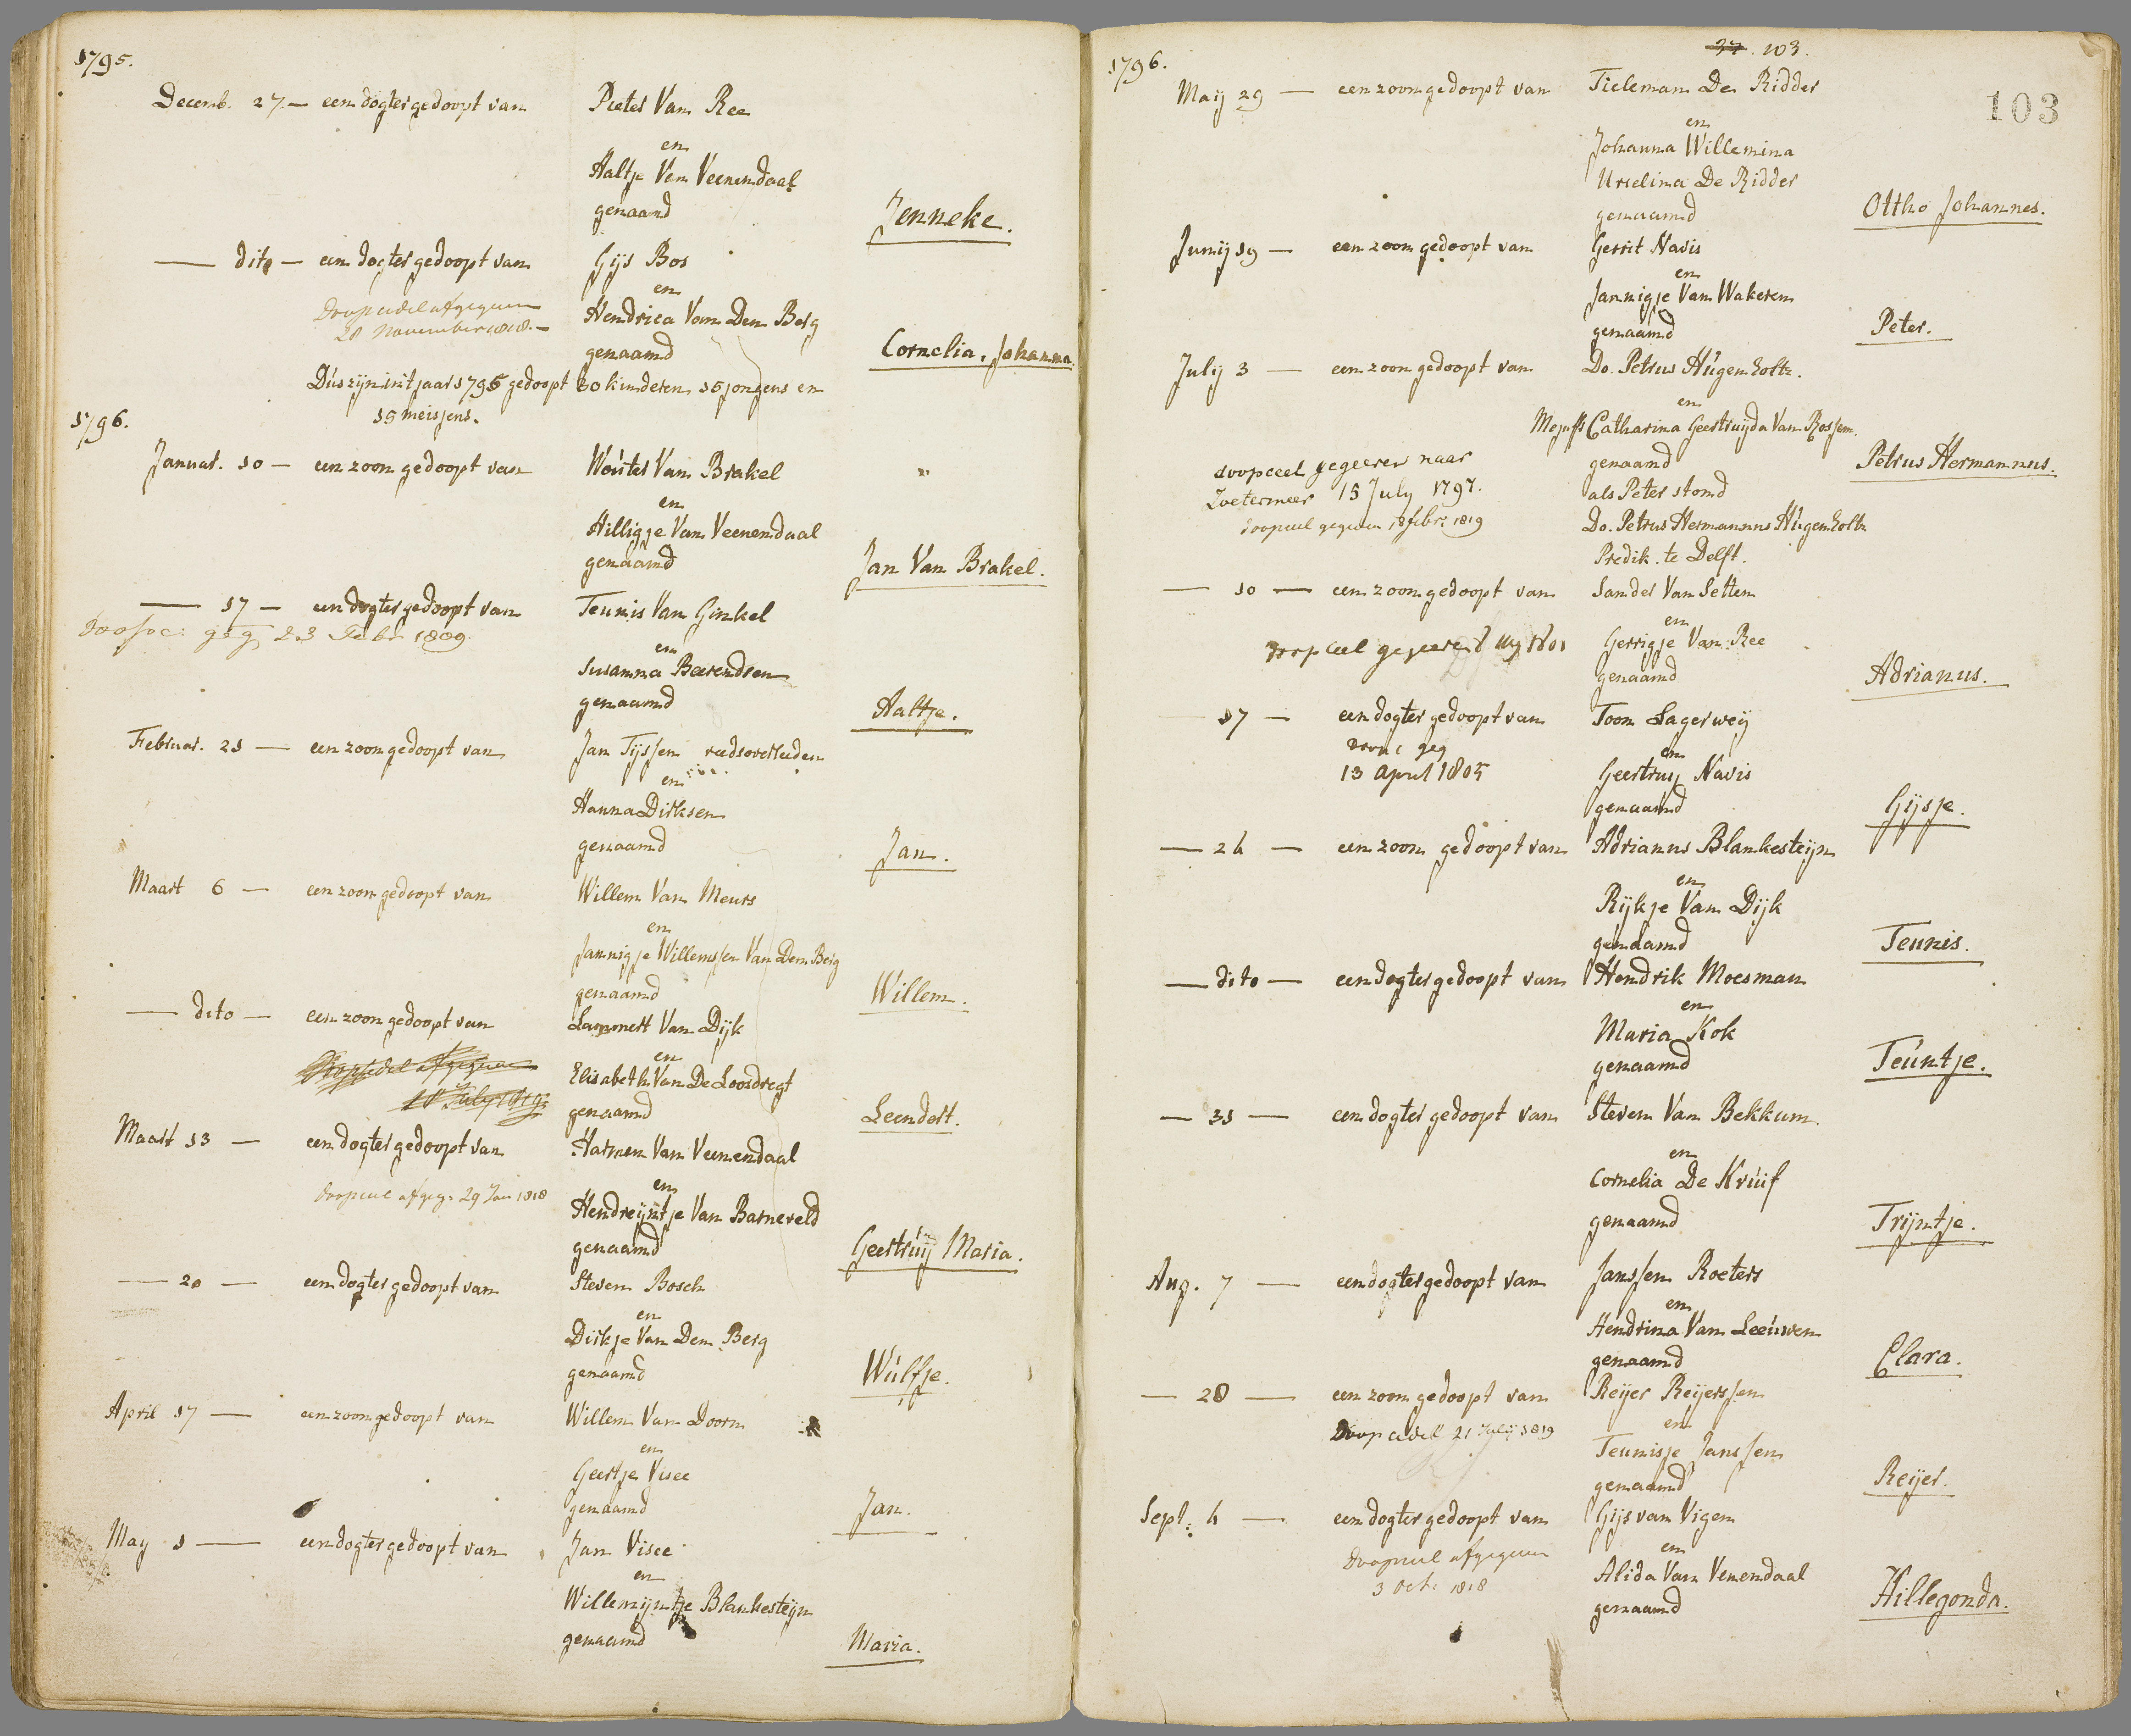 1795.
Decemb. 27. — een dogter gedoopt van Pieter Van Ree
en
Aaltje Van Veenendaal
genaamd Jenneke.
— dito — een dogter gedoopt van Gijs Bos
en
Doopcedel afgegeven Hendrica Van Den Berg
28 November 1818. —
genaamd Cornelia, Johanna.
Dús zijn int jaar 1795 gedoopt 30 kinderen 15 jongens en
15 meisjens.
1796.
Januar. 10 — een zoon gedoopt van Woúter Van Brakel
en
Hilligje Van Veenendaal
genaamd Jan Van Brakel.
— 17 — een dogter gedoopt van Teunis Van Ginkel
geg 23 Febr 1809.
en
Susanna Barendsen
genaamd Aaltje.
Februar. 21 — een zoon gedoopt van Jan Tijssen reeds overleeden
en
Hanna Dirksen
genaamd Jan.
Maart 6 — een zoon gedoopt van Willem Van Meurs
en
Jannigje Willemssen Van Den Berg
genaamd Willem.
— dito — een zoon gedoopt van Lammert Van Dijk
en
Doopcedel afgegeven Elisabeth Van De Loosdregt
18 July 1819
genaamd Leendert.
Maart 13 — een dogter gedoopt van Harmen Van Veenendaal
en
doopceel afgeg. 29 Jan 1818 Hendreijntje Van Barneveld
genaamd Geertrúij Maria.
— 20 — een dogter gedoopt van Steven Bosch
en
Dirkje Van Den Berg
genaamd Wúlfje.
April 17 — een zoon gedoopt van Willem Van Doorn
en
Geertje Visee
genaamd Jan.
May 1 — een dogter gedoopt van Jan Visee
en
Willemijntje Blankesteijn
genaamd Maria.
1796.
37. 103.
103
Maij 29 — een zoon gedoopt van Tieleman De Ridder
en
Johanna Willemina
Urselina De Ridder
genaamd Ottho Johannes.
Junij 19 — een zoon gedoopt van Gerrit Navis
en
Jannigje Van Wakeren
genaamd Peter.
July 3 — een zoon gedoopt van Do. Petrus Húgenholtz.
en
Mejuff Catharina Geertruijda Van Rossem.
doopceel gegeeven naar genaamd Petrus Hermannus.
Zoetermeer 15 July 1797. als Peter stond
doopceel gegeven 18 febr. 1819 Do. Petrus Hermannus Húgenholtz
Predik. te Delft.
— 10 — een zoon gedoopt van Sander Van Setten
en
doopceel gegeeven 1801 Gerrigje Van Ree
genaamd Adrianus.
— 17 — een dogter gedoopt van Toon Lagerweij
geg
en
13 April 1805 Geertruij Navis
genaamd Gijsje.
— 24 — een zoon gedoopt van Adrianus Blankesteijn
en
Rijkje Van Dijk
genaamd Teunis.
— dito — een dogter gedoopt van Hendrik Moesman
en
Maria Kok
genaamd Teúntje.
— 31 — een dogter gedoopt van Steven Van Bekkum.
en
Cornelia De Krúif
genaamd Trijntje.
Aug. 7 — een dogter gedoopt van Janssen Roeters
en
Hendrina Van Leeúwen
genaamd Clara.
— 28 — een zoon gedoopt van Reijer Reijerssen
Doopcedel 21 Julij 1819 en
Teunisje Janssen
genaamd Reijer.
Sept. 4 — een dogter gedoopt van Gijs van Vigen
en
Doopceel afgegeven Alida Van Venendaal
3 Oct. 1818
genaamd Hillegonda.